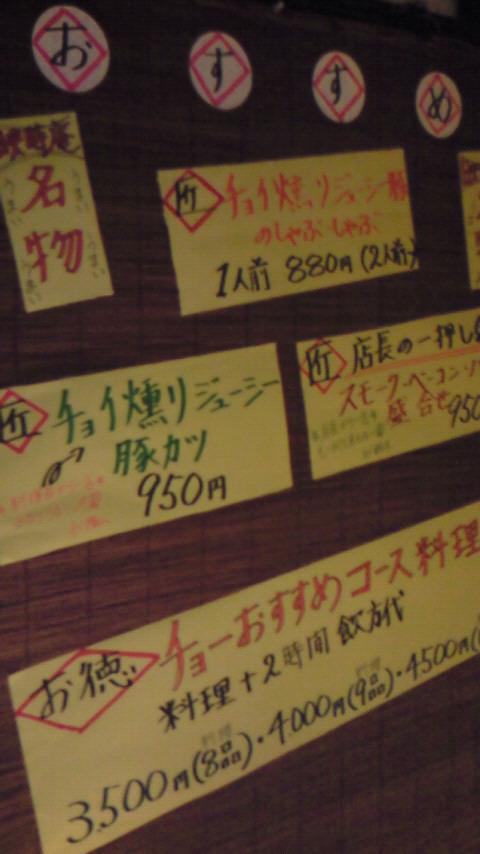 おすすめ
名物
うまい うまい
うまい うまい
チョイ燻りジューシー豚
のしゃぶしゃぶ
1人前 880円 (2人前)
店長の一押し
スモークベーコン
盛合せ 950
チョイ燻りジューシー
豚カツ
950円
お徳 チョーおすすめコース料理
料理+2時間 飲方代
3,500円(8品)・4,000円(9品)・4,500円(